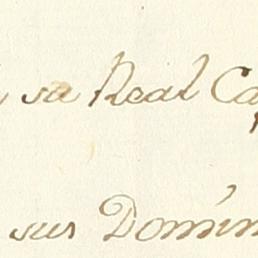 su Real Ca
sus Domin